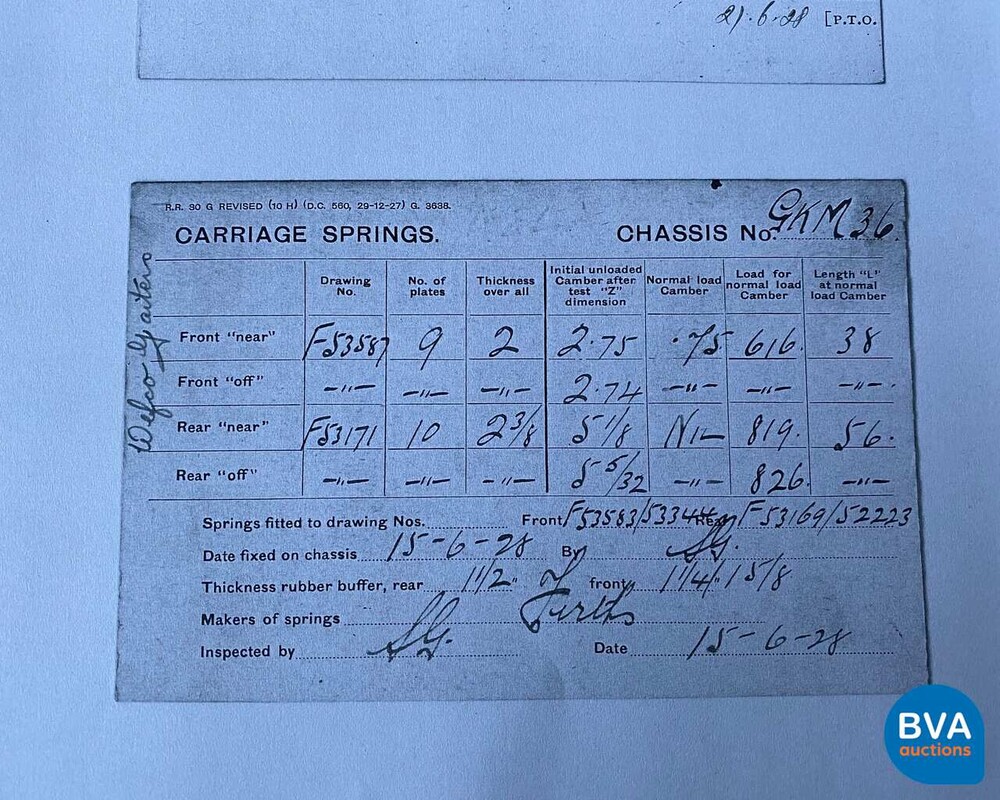 21.6.28 [P.T.O.
R.R. 30 G REVISED (10 H) (D.C. 560, 29-12-27) G. 3638.
CARRIAGE SPRINGS. CHASSIS No. GKM 36.
Wefco Gaiters
Drawing No. No. of plates Thickness over all Initial unloaded Camber after test "Z" dimension Normal load Camber Load for normal load Camber Length "L" at normal load Camber
Front "near" F53587 9 2 2.75 .75 616. 38
Front "off" —"— —"— —"— 2.74 —"— —"— —"—.
Rear "near" F53171 10 2 3/8 5 1/8 NIL 819. 56.
Rear "off" —"— —"— —"— 5 5/32 —"— 826. —"—
Springs fitted to drawing Nos. Front F53583/53344 Rear F53169/52223
Date fixed on chassis 15-6-28 By SG.
Thickness rubber buffer, rear 1 1/2" front, 1 1/4" 1 5/8
Makers of springs Firths
Inspected by SG. Date 15-6-28
BVA
auctions